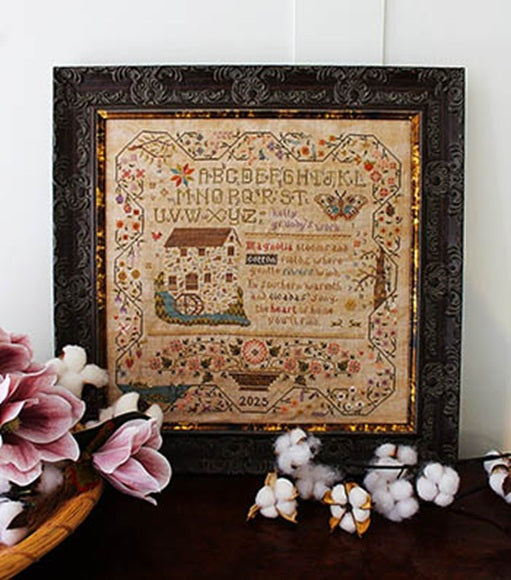 ABCDEFGHIJKL
MNOPQRST
UVWXYZ
kelly
grundy's work
Magnolia blooms and
cotton fields where
gentle rivers wind
In southern warmth
and cicadas' song
the heart of home
you'll find
2025